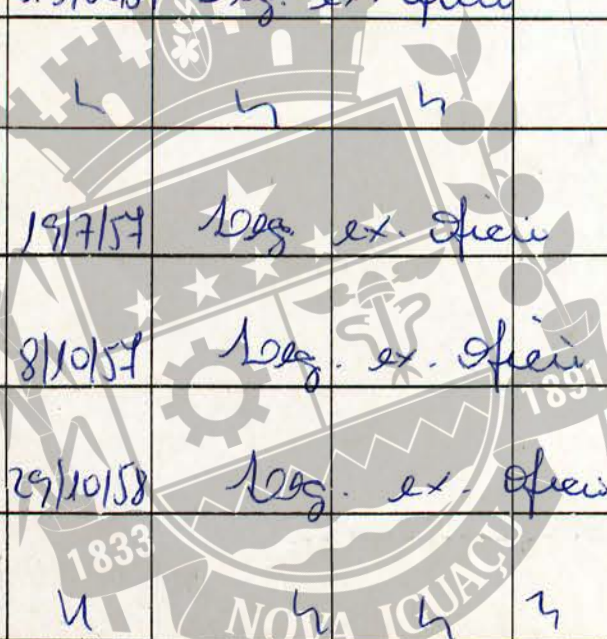 Leg. ex. Oficio
19/7/57 Leg. ex. Oficio
8/10/57 Leg. ex. Oficio
1891
29/10/58 Leg. ex. Oficio
1833
NOVA IGUAÇU